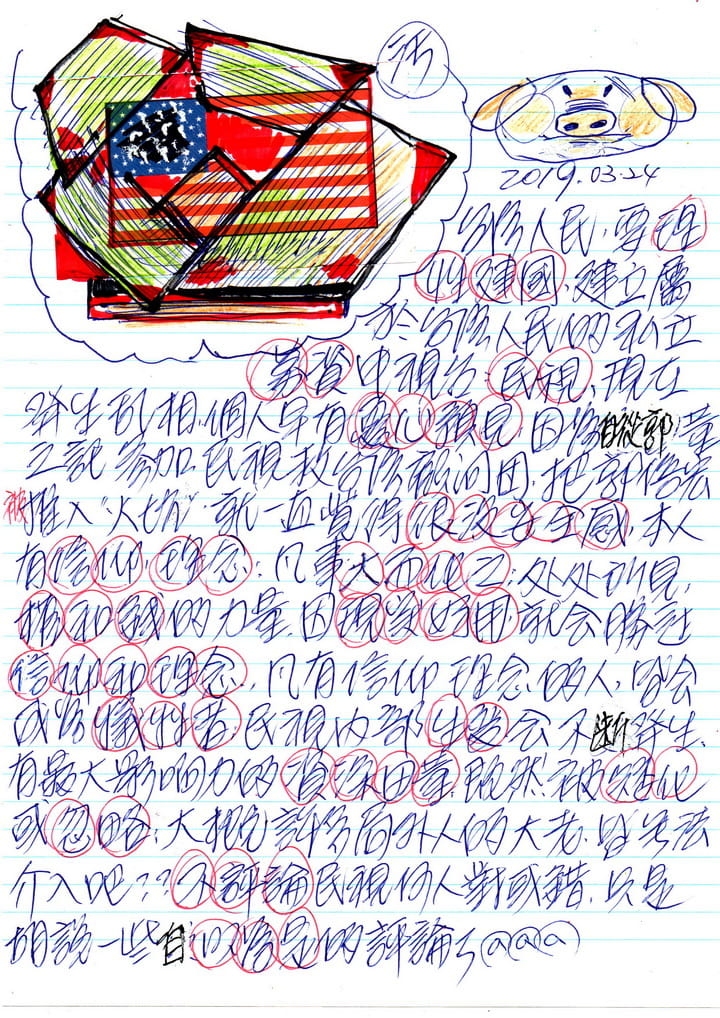 2019.03.24
台灣人民,要理
性建國,建立屬
於台灣人民的私立
募資中視台:民視,現在
發生亂相,個人早有靈心預見,因為自從郭董
之說參加民視救台灣顧問團,把郭倍宏
被推入"火坑"就一直覺得很沒安全感,本人
有信仰,理念,凡事大而化之,處處可見,
權和錢的力量,因現實好用,就會勝過
信仰和理念,凡有信仰理念的人,皆會
成為犧牲者,民視內部生變,會不斷發生,
有最大影响力的 既然被矮化
或忽略,大概許多局外人的大老,皆無法
介入吧??不評論民視何人對或錯,只是
胡說一些自以為是的評論了@@@